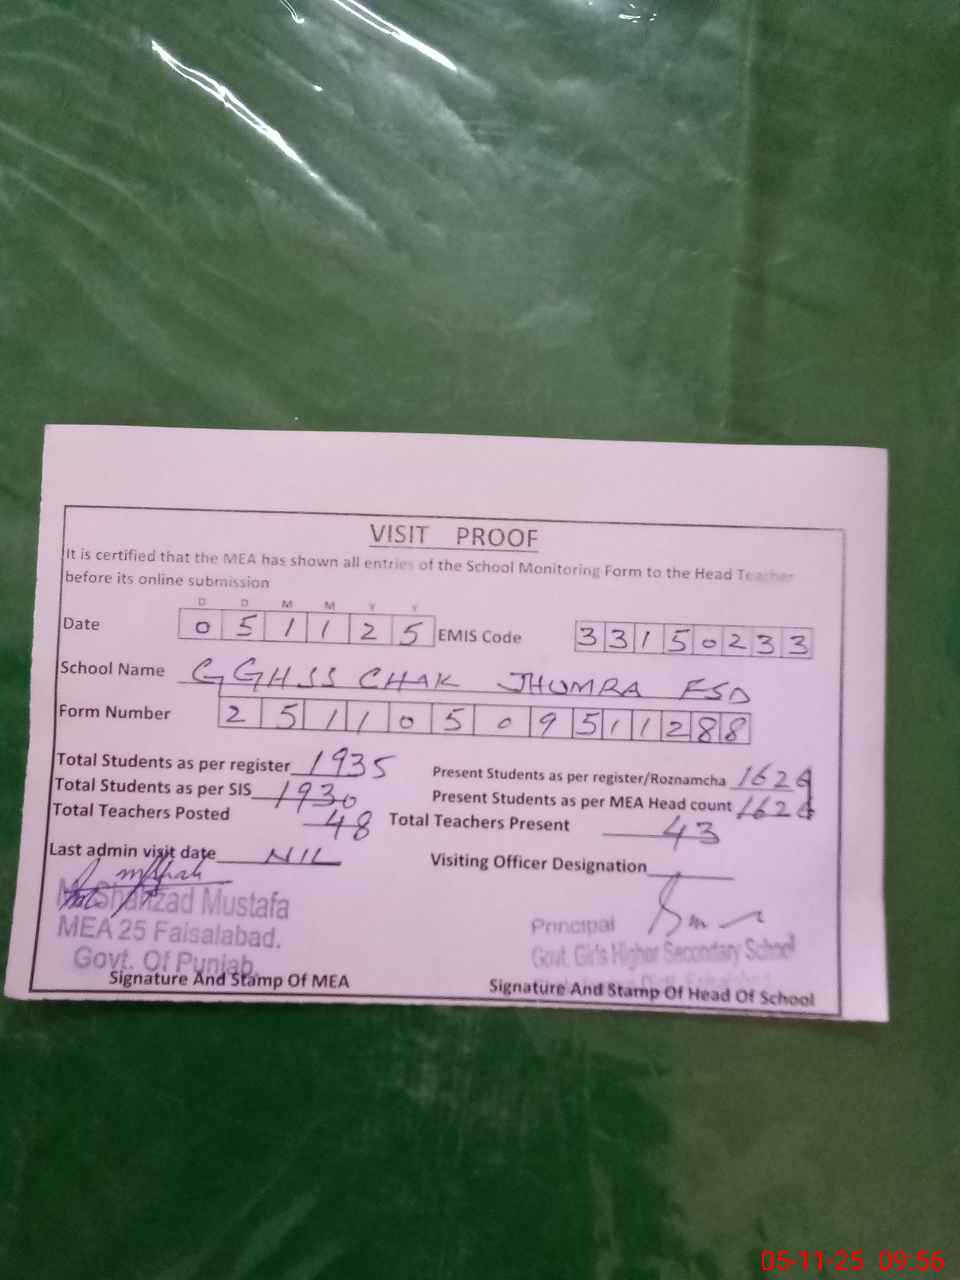 VISIT PROOF
It is certified that the MEA has shown all entries of the School Monitoring Form to the Head Teacher
before its online submission
D D M M Y Y
Date 0 5 1 1 2 5 EMIS Code 3 3 1 5 0 2 3 3
School Name GGHSS CHAK JHUMRA FSD
Form Number 2 5 1 1 0 5 0 9 5 1 1 2 8 8
Total Students as per register 1935 Present Students as per register/Roznamcha
Total Students as per SIS 1930 Present Students as per MEA Head count
Total Teachers Posted 48 Total Teachers Present 43
Last admin visit date NIL Visiting Officer Designation
Shahzad Mustafa
MEA 25 Faisalabad.
Govt. Of Punjab
Signature And Stamp Of MEA
Principal
Govt. Girls Higher Secondary School
Signature And Stamp Of Head Of School
05-11-25 09:56